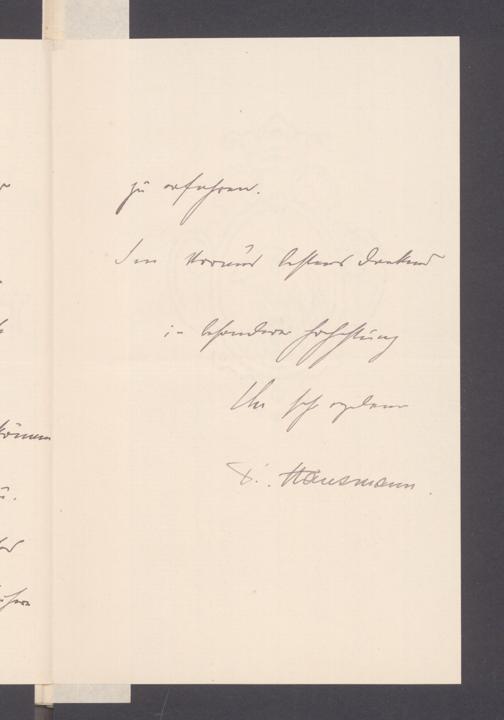 zu erfahren.
Im Voraus bestens dankend
in besonderer Hochachtung
Ihr sehr ergebener
Hausmann.